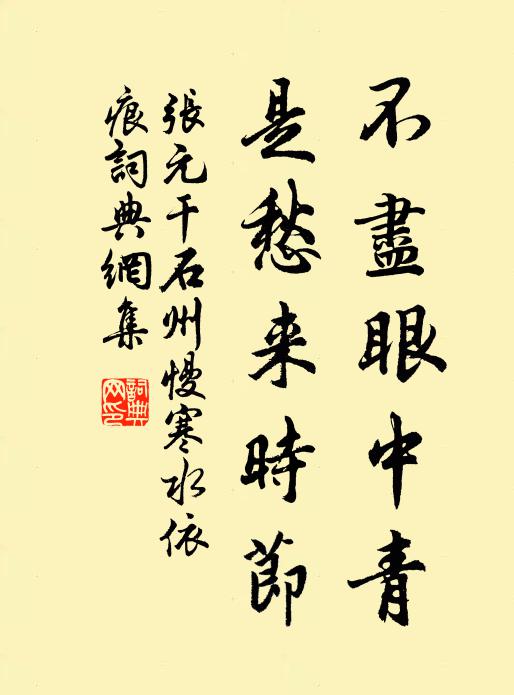 不盡眼中青
是愁来時節
張元干石州慢寒水依
痕詞典網集
詞典
网印